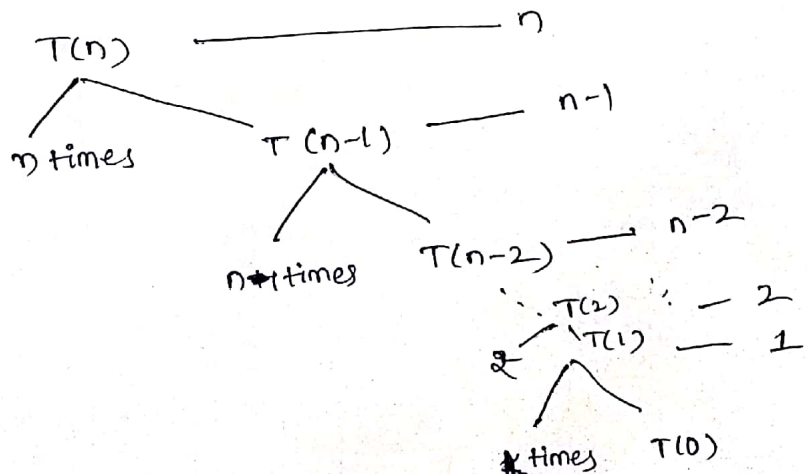 T(n) n
n times T(n-1) n-1
times T(n-2) n-2
T(2) 2
2 T(1) 1
times T(0)